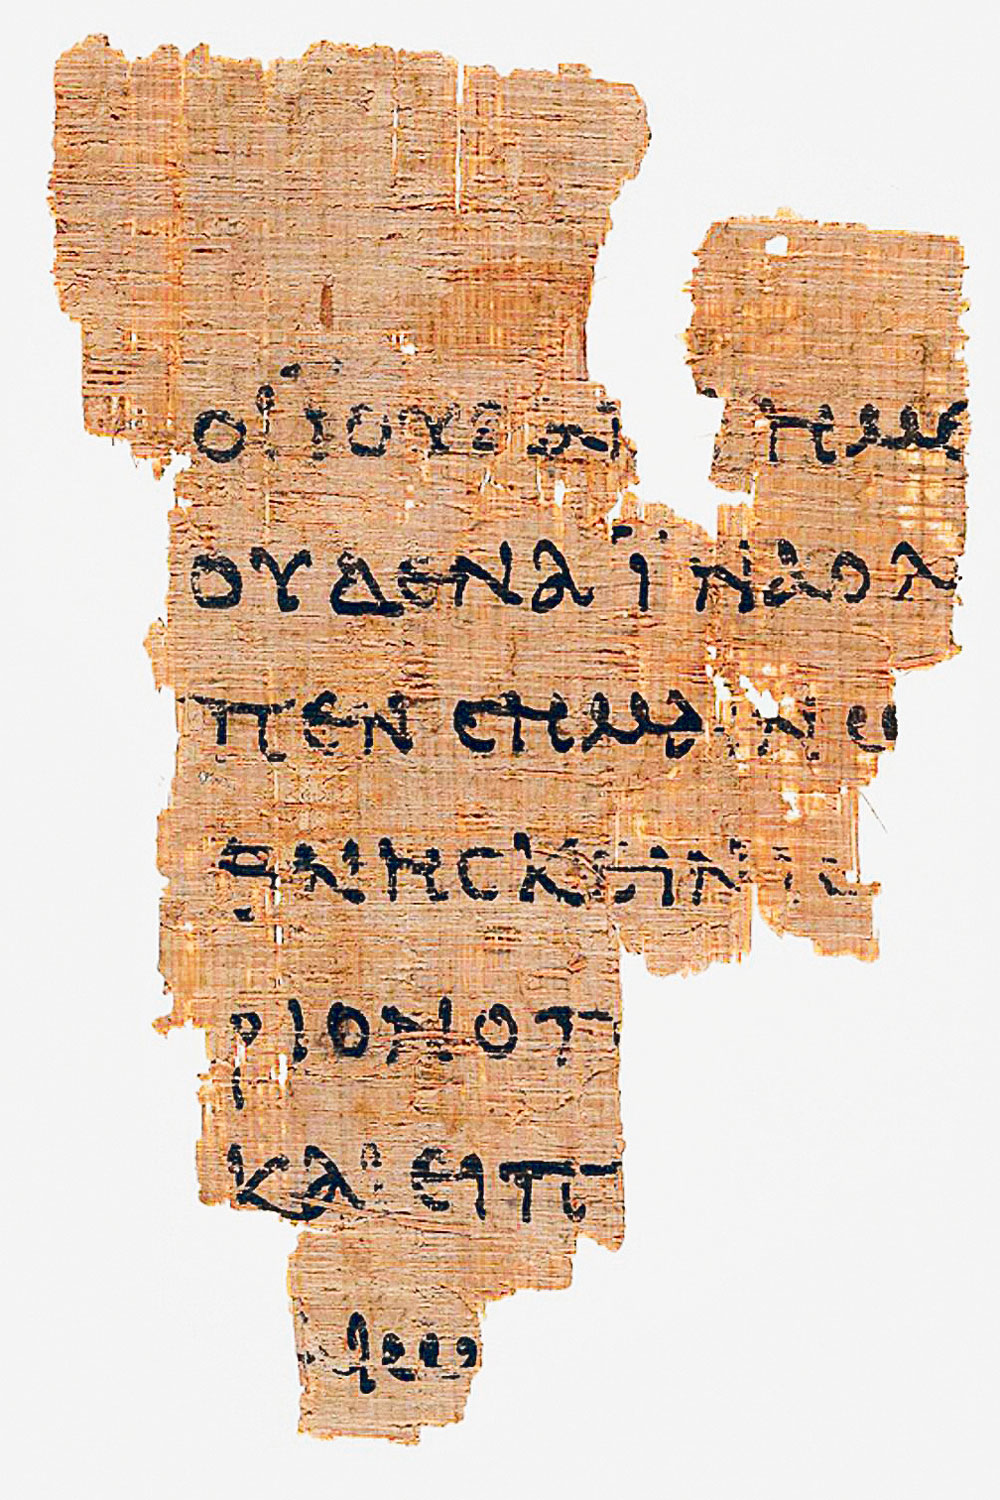 ΟΙ ΙΟΥΔΑΙ ΗΜΕ
ΟΥΔΕΝΑ ΙΝΑ Ο Λ
ΠΕΝ ϹΗΜΑΙΝΩ
ΘΝΗϹΚΕΙΝ ΙϹ
ΡΙΟΝ Ο Π
ΚΑΙ ΕΙΠ
ΔΑΙΩ